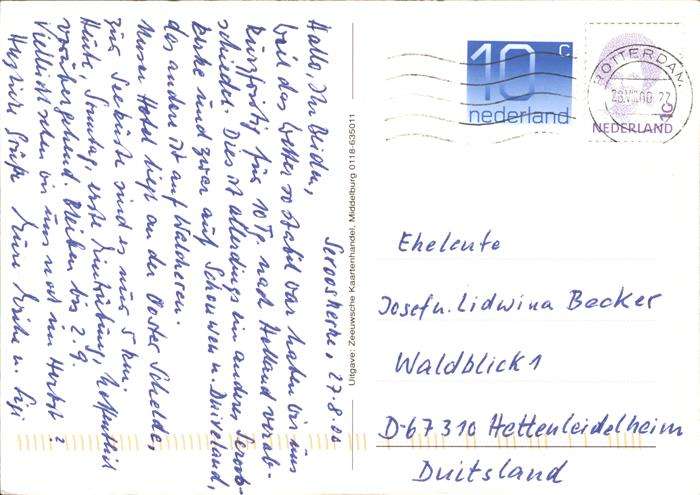 Serooskerke, 27.8.00
Hallo, Ihr Beiden,
weil das Wetter so stabil war haben wir uns
kurzfristig für 10 T. nach Holland verab-
schiedet. Dies ist allerdings ein anderes Seroos-
kerke und zwar auf Schouwen u. Duiveland,
das andere ist auf Walcheren.
Unser Hotel liegt an der Ooster Schelde,
zur Seeküste sind es nur 5 km.
Heute Sonntag erste Eintrübung, hoffentlich
vorübergehend. Bleiben bis 2.9.
Vielleicht sehen wir uns noch im Herbst?
Herzliche Grüße Eure u. Sigi
Uitgave: Zeeuwsche Kaartenhandel, Middelburg 0118-635011
10 c
nederland
ROTTERDAM
NEDERLAND
Eheleute
Josef u. Lidwina Becker
Waldblick 1
D-67310 Hettenleidelheim
Duitsland